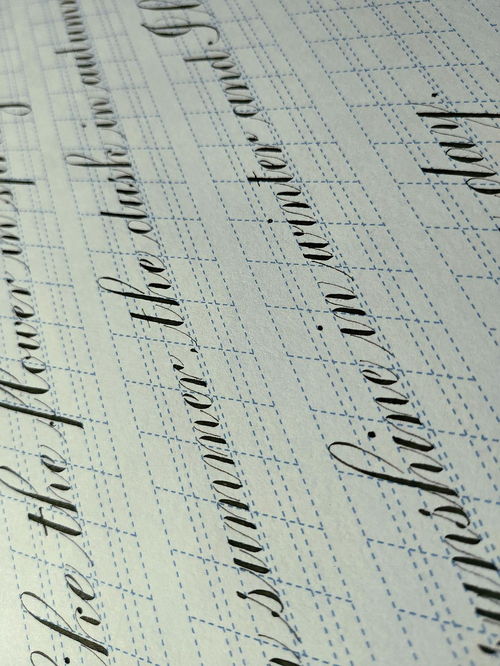 ike the flower in
summer, the dusk in autumn
unshine in winter and